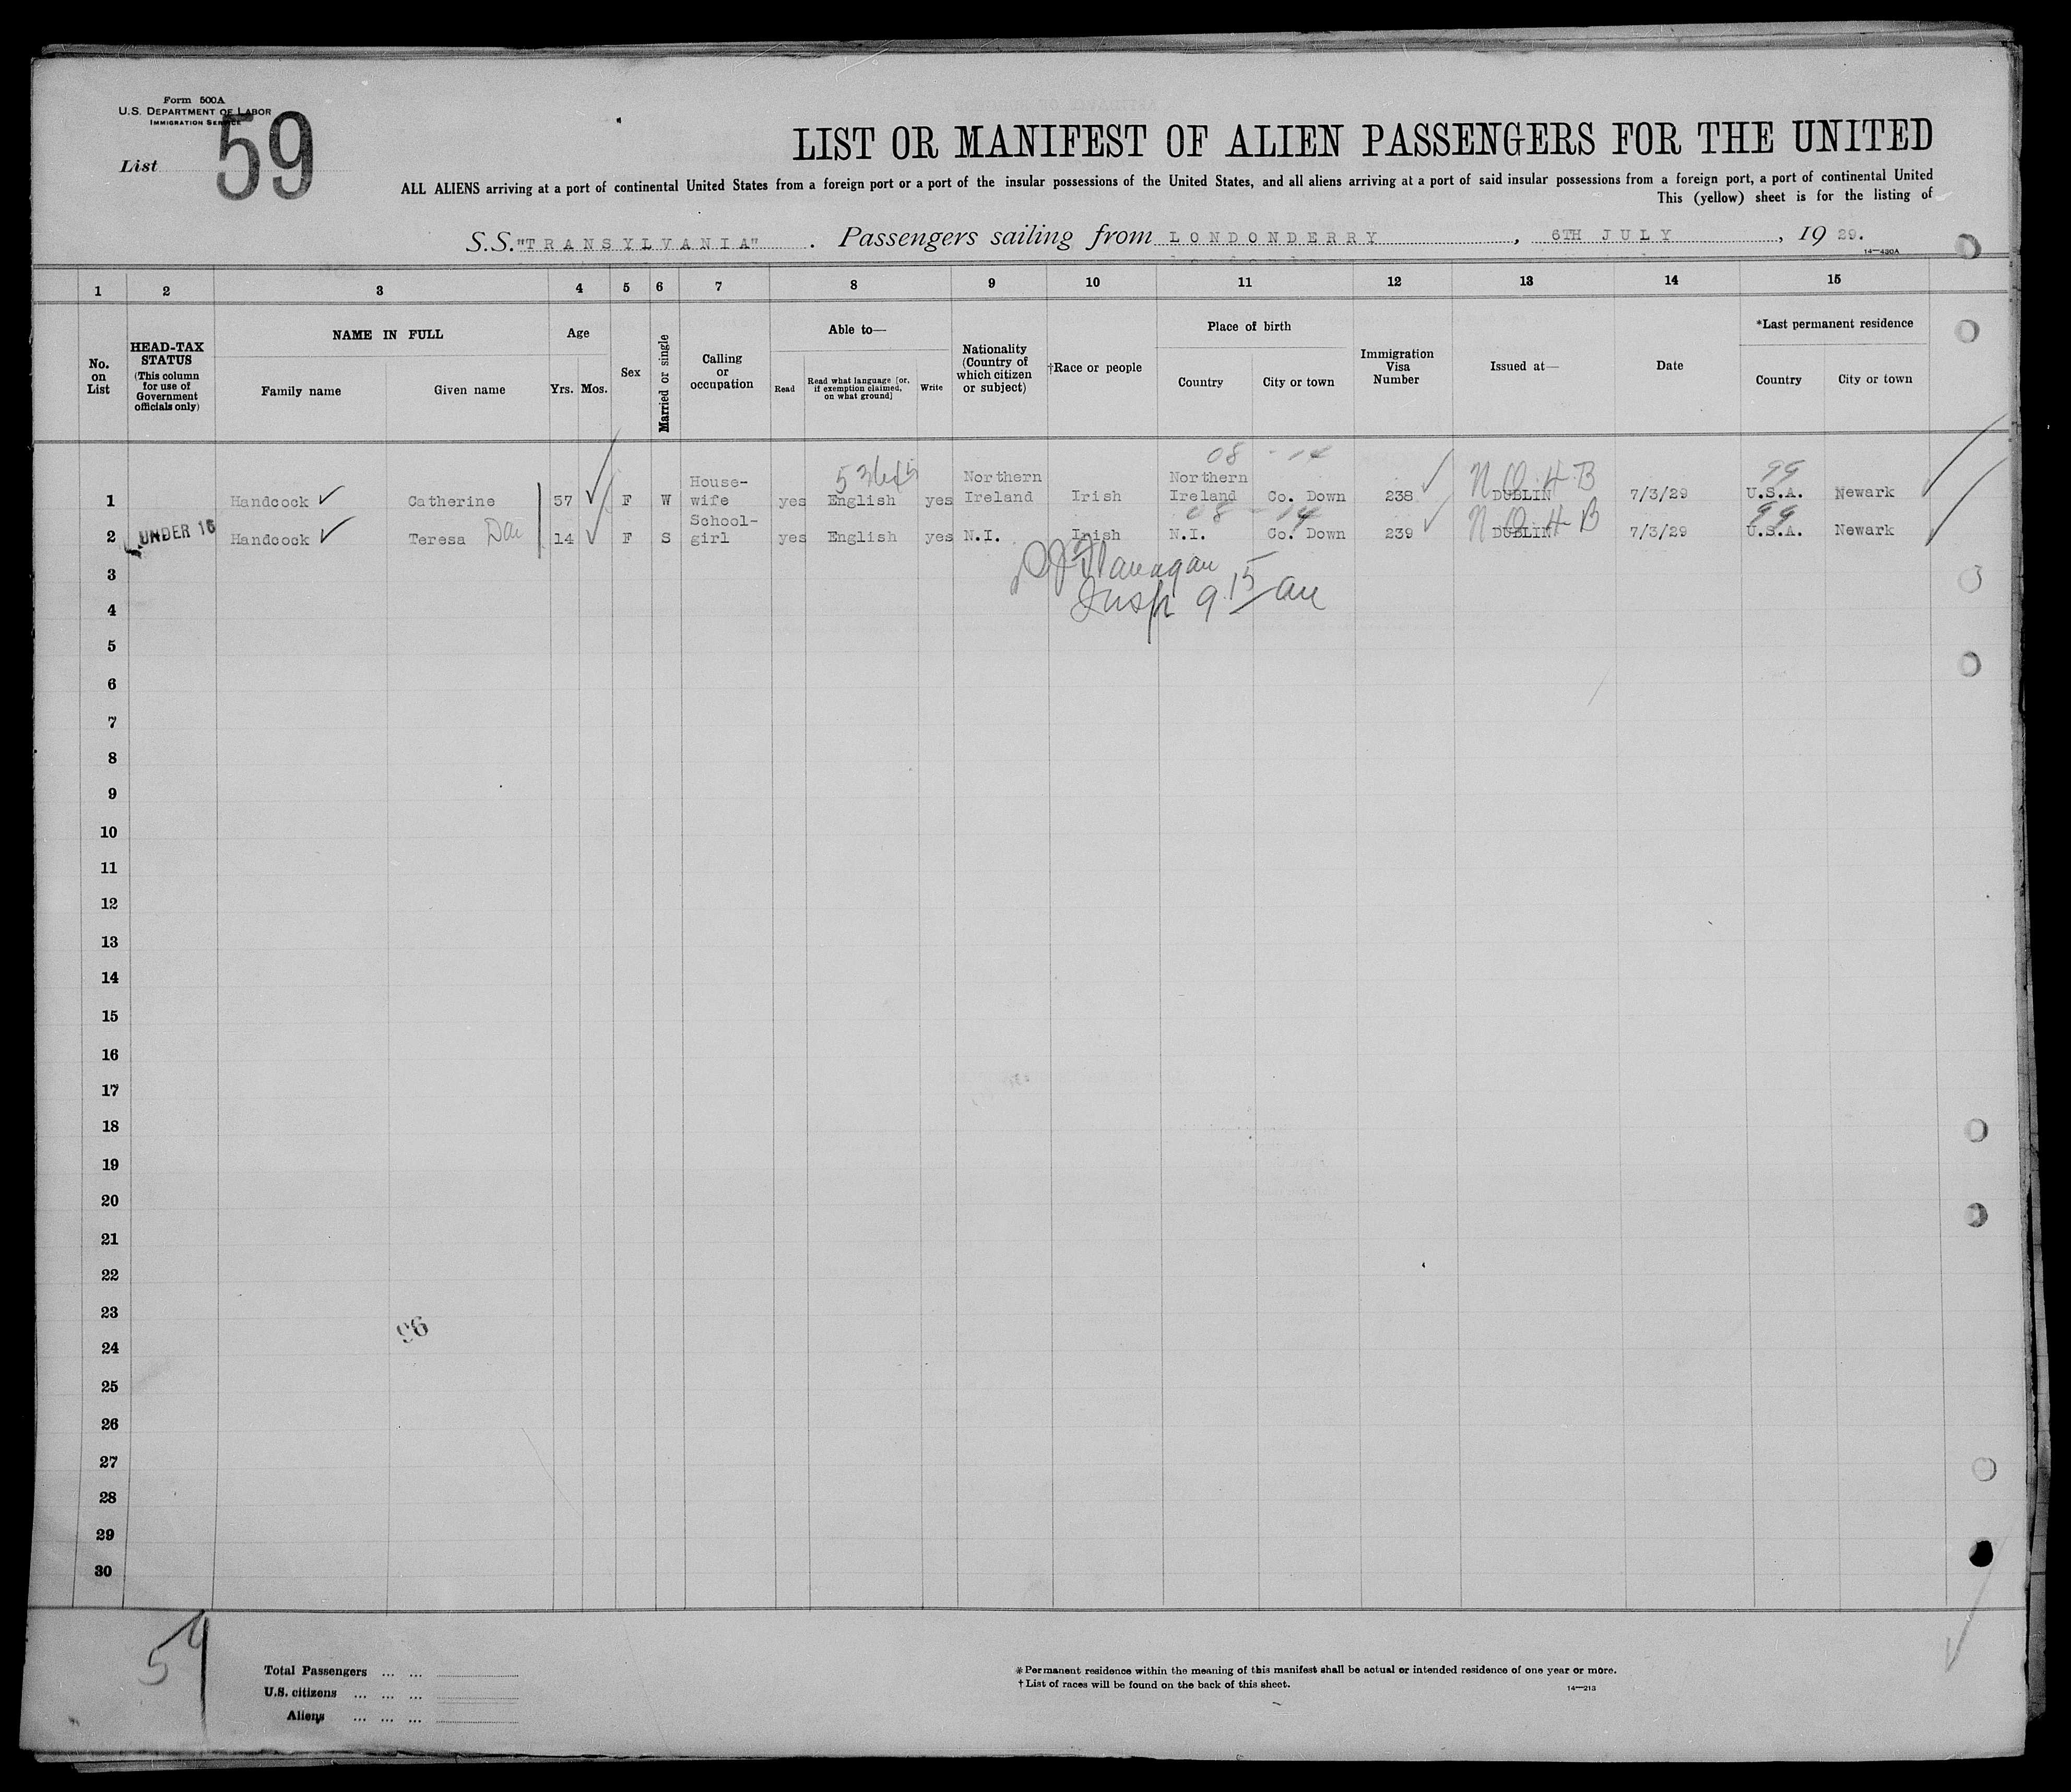 Form 500A
U.S. DEPARTMENT OF LABOR
IMMIGRATION SERVICE
List 59
LIST OR MANIFEST OF ALIEN PASSENGERS FOR THE UNITED
ALL ALIENS arriving at a port of continental United States from a foreign port or a port of the insular possessions of the United States, and all aliens arriving at a port of said insular possessions from a foreign port, a port of continental United
This (yellow) sheet is for the listing of
S.S. "TRANSYLVANIA" . Passengers sailing from LONDONDERRY , 6TH JULY , 19 29.
14—430A
1 2 3 4 5 6 7 8 9 10 11 12 13 14 15
No. on List
HEAD-TAX STATUS (This column for use of Government officials only)
NAME IN FULL
Family name Given name
Age
Yrs. Mos.
Sex
Married or single
Calling or occupation
Able to—
Read
Read what language [or, if exemption claimed, on what ground]
Write
Nationality (Country of which citizen or subject)
†Race or people
Place of birth
Country City or town
Immigration Visa Number
Issued at—
Date
*Last permanent residence
Country City or town
08 - 14 99
1 Handcock Catherine 57 F W House-wife yes English yes Northern Ireland Irish Northern Ireland Co. Down 238 DUBLIN 7/3/29 U.S.A. Newark
08 - 14 99
2 UNDER 16 Handcock Teresa Dau 14 F S School-girl yes English yes N.I. Irish N.I. Co. Down 239 DUBLIN 7/3/29 U.S.A. Newark
3 Flanagan
4 Insp 9 15 am
5
6
7
8
9
10
11
12
13
14
15
16
17
18
19
20
21
22
23
96
24
25
26
27
28
29
30
59
Total Passengers ... ...
U.S. citizens ... ... ...
Aliens ... ... ...
*Permanent residence within the meaning of this manifest shall be actual or intended residence of one year or more.
†List of races will be found on the back of this sheet.
14—213